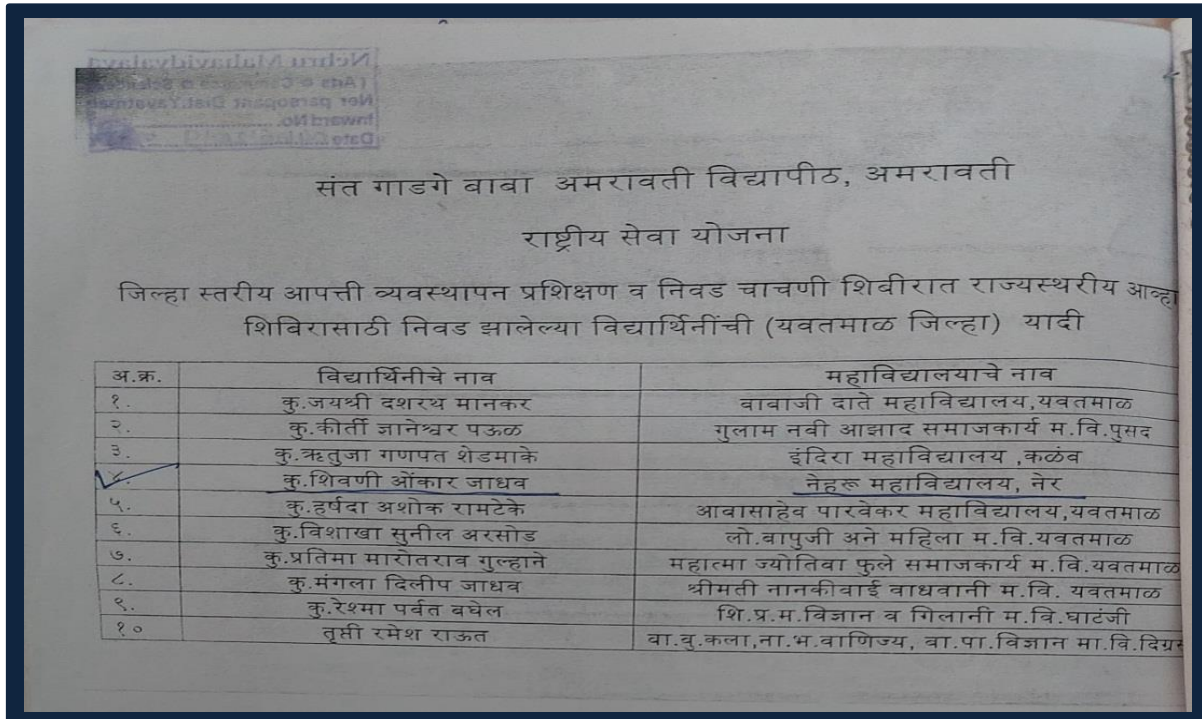 Nehru Mahavidyalaya
Ner parsopant Dist.Yavatmal
Inward No.
Date
संत गाडगे बाबा अमरावती विद्यापीठ, अमरावती
राष्ट्रीय सेवा योजना
जिल्हा स्तरीय आपत्ती व्यवस्थापन प्रशिक्षण व निवड चाचणी शिबीरात राज्यस्थरीय आव्हा
शिबिरासाठी निवड झालेल्या विद्यार्थिनींची (यवतमाळ जिल्हा) यादी
अ.क्र. विद्यार्थिनीचे नाव महाविद्यालयाचे नाव
१. कु.जयश्री दशरथ मानकर बाबाजी दाते महाविद्यालय,यवतमाळ
२. कु.कीर्ती ज्ञानेश्वर पऊळ गुलाम नबी आझाद समाजकार्य म.वि.पुसद
३. कु.ऋतुजा गणपत शेडमाके इंदिरा महाविद्यालय ,कळंब
४. कु.शिवणी ओंकार जाधव नेहरू महाविद्यालय, नेर
५. कु.हर्षदा अशोक रामटेके आबासाहेब पारवेकर महाविद्यालय,यवतमाळ
६. कु.विशाखा सुनील अरसोड लो.बापुजी अने महिला म.वि.यवतमाळ
७. कु.प्रतिमा मारोतराव गुल्हाने महात्मा ज्योतिबा फुले समाजकार्य म.वि.यवतमाळ
८. कु.मंगला दिलीप जाधव श्रीमती नानकीबाई वाधवानी म.वि. यवतमाळ
९. कु.रेश्मा पर्वत बघेल शि.प्र.म.विज्ञान व गिलानी म.वि.घाटंजी
१० तृप्ती रमेश राऊत बा.बु.कला,ना.भ.वाणिज्य, बा.पा.विज्ञान मा.वि.दिग्रस